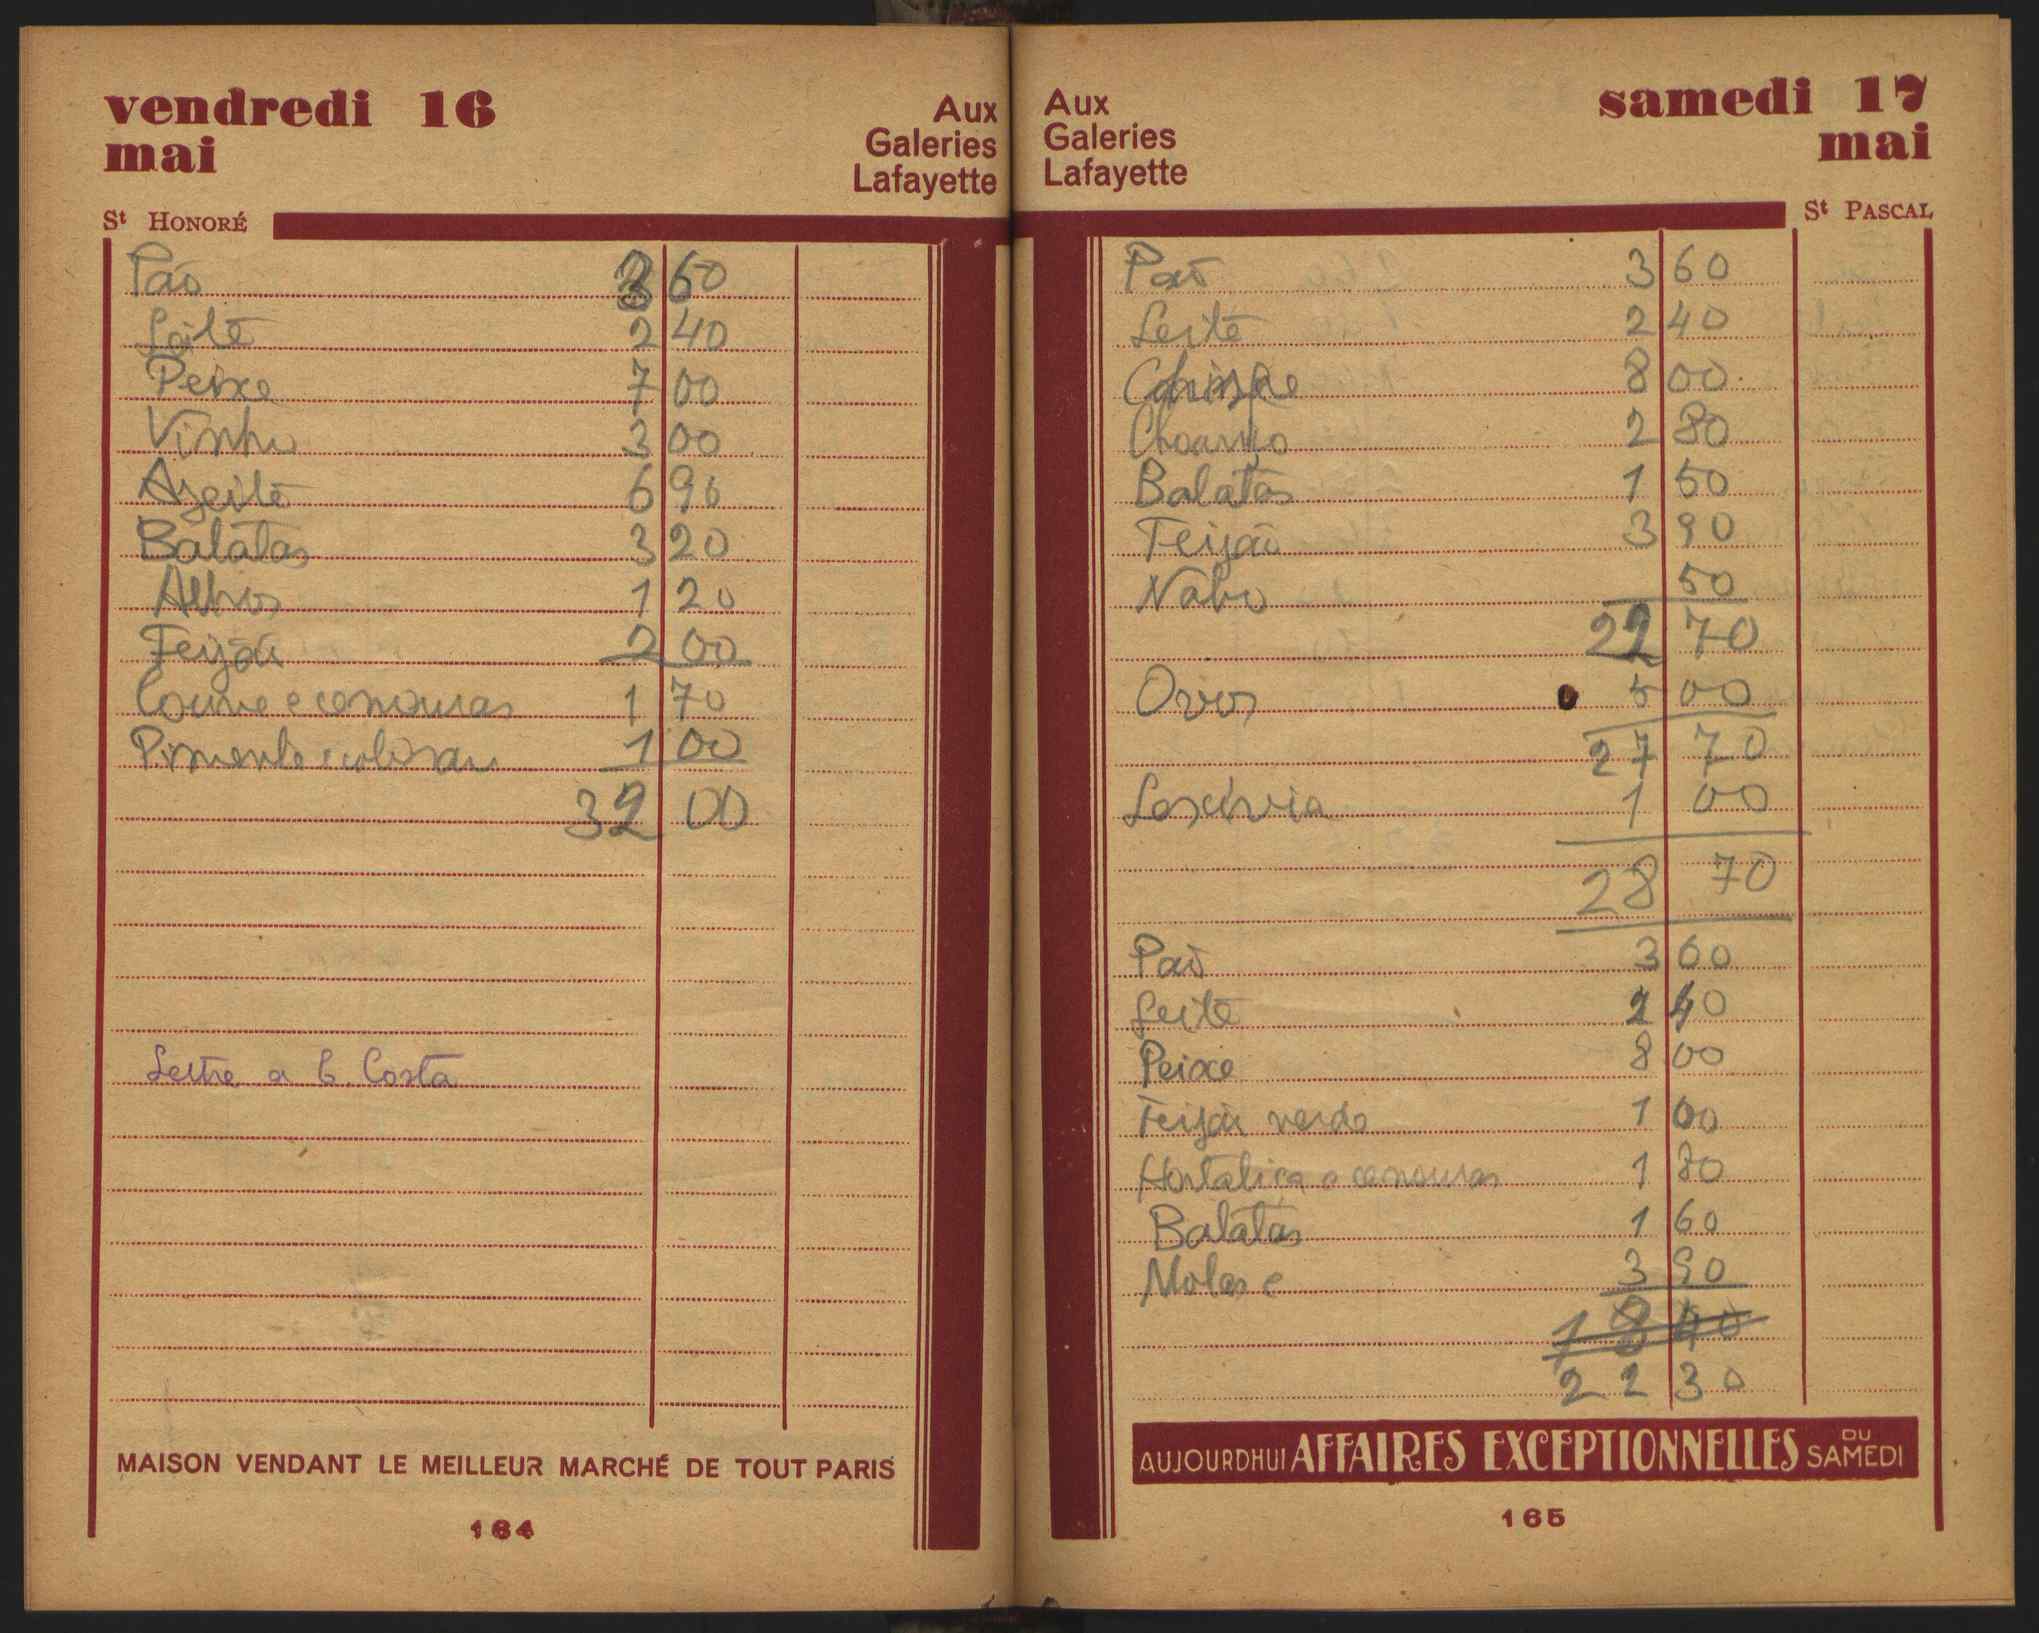 vendredi 16
mai
Aux
Galeries
Lafayette
St HONORÉ
Pão 3 60
Leite 2 40
Peixe 7 00
Vinho 3 00
Azeite 6 90
Batatas 3 20
Alhos 1 20
Feijão 2 00
Couve e cenouras 1 70
Pimenta e colorau 1 00
32 00
Lettre a C. Costa
MAISON VENDANT LE MEILLEUR MARCHÉ DE TOUT PARIS
164
Aux
Galeries
Lafayette
samedi 17
mai
St PASCAL
Pão 3 60
Leite 2 40
Chispe 8 00
Chouriço 2 80
Batatas 1 50
Feijão 3 90
Nabo 50
22 70
Ovos 5 00
27 70
Lexívia 1 00
28 70
Pão 3 60
Leite 2 40
Peixe 8 00
Feijão verde 1 00
Hortaliça e cenouras 1 80
Batatas 1 60
Molas e 3 90
18 40
22 30
AUJOURDHUI AFFAIRES EXCEPTIONNELLES DU SAMEDI
165